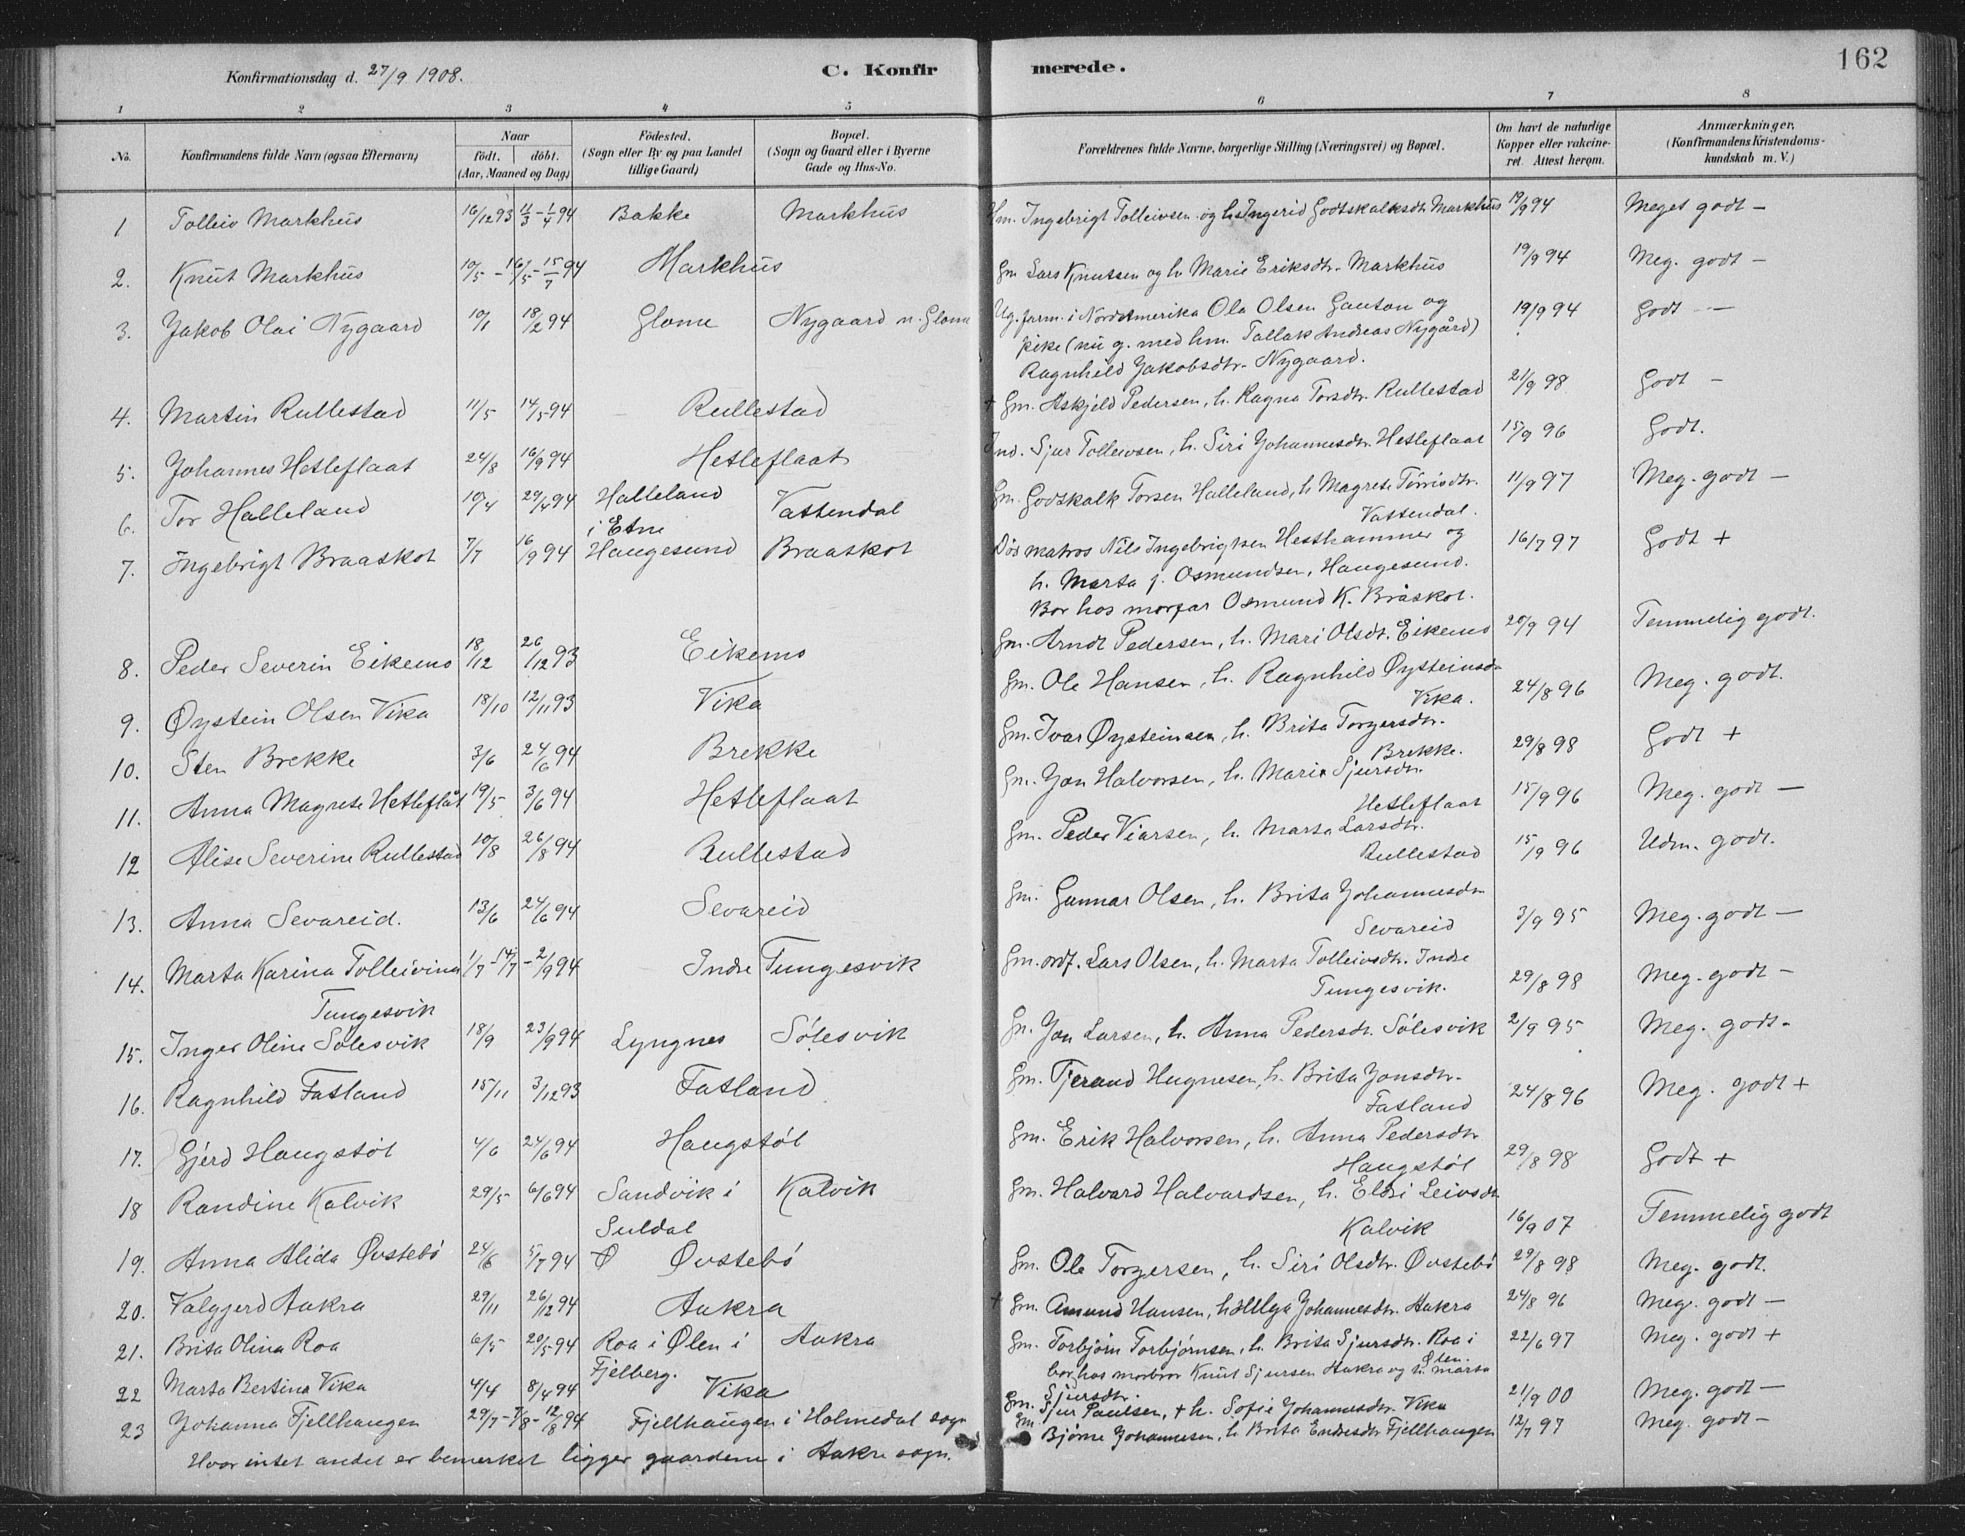 162
Konfirmationsdag d. 27/9 1908. C. Konfirmerede.
1 2 3 4 5 6 7 8
No. Konfirmandens fulde Navn (ogsaa Efternavn) Naar födt. döbt. (Aar, Maaned og Dag) Födested. (Sogn eller By og paa Landet tillige Gaard) Bopæl. (Sogn og Gaard eller i Byerne Gade og Hus-No. Forældrenes fulde Navne, borgerlige Stilling (Næringsvei) og Bopæl. Om havt de naturlige Kopper eller vakcineret. Attest herom. Anmærkninger. (Konfirmandens Kristendomskundskab m. V.)
1 Tolleiv Markhus 16/12 93 11/3 - 1/4 94 Bakke Markhus Hm. Ingebrigt Tolleivsen og h. Ingerid Godtskalksdtr Markhus 19/9 94 Meget godt -
2. Knut Markhus 10/5 - 16/5 - 15/7 94 Markhus Gm. Lars Knutsen og h. Marie Eriksdtr. Markhus 19/9 94 Meg. godt -
3. Jakob Olai Nygaard 10/1 18/2 94 Glome Nygaard n. Glome Ug. farm. i Nordamerika Ole Olsen Gauton og 19/9 94 Godt -
pike (nu g. med hm. Tallak Andreas Nygård)
Ragnhild Jakobsdtr. Nygaard.
4. Martin Rullestad 11/5 14/5 94 Rullestad + Gm. Askjeld Pedersen, h. Ragna Torsdtr. Rullestad 21/9 98 Godt -
5. Johannes Hetleflaat 24/8 16/9 94 Hetleflaat Ind. Sjur Tolleivsen, h. Siri Johannesdtr. Hetleflaat 15/9 96 Godt.
6. Tor Halleland 10/4 29/4 94 Halleland Vattendal Gm. Godskalk Torsen Halleland, h. Magrete Tørrisdtr. 11/9 97 Meg. godt -
i Etne Vattendal.
7. Ingebrigt Braaskot 7/7 16/9 94 Haugesund Braaskot Døs matros Nils Ingebrigtsen Hesthammer og 16/7 97 Godt +
h. Marta j. Osmundsen, Haugesund.
Bor hos morfar Osmund K. Bråskot.
8. Peder Severin Eikemo 18/12 26/12 93 Eikemo Gm. Arndt Pedersen, h. Mari Olsdtr. Eikemo 20/9 94 Temmelig godt.
9. Øystein Olsen Vika 18/10 12/11 93 Vika Gm. Ole Hansen, h. Ragnhild Øysteinsdtr 24/8 96 Meg. godt.
Vika.
10. Sten Brekke 3/6 24/6 94 Brekke Gm. Ivar Øysteinsen, h. Brita Torgersdtr. 29/8 98 Godt +
Brekke.
11. Anna Magrete Hetleflåt 19/5 3/6 94 Hetleflaat Gm. Jon Halvorsen, h. Marie Sjursdtr. 15/9 96 Meg. godt -
Hetleflaat
12 Alise Severine Rullestad 10/8 26/8 94 Rullestad Gm. Peder Viarsen, h. Marta Larsdtr. 15/9 96 Udm. godt.
Rullestad
13. Anna Sevareid. 13/6 24/6 94 Sevareid Gm. Gunnar Olsen, h. Brita Johannesdtr 3/9 95 Meg. godt -
Sevareid
14. Marta Karina Tolleivina 1/7 - 14/7 - 2/9 94 Indre Tungesvik Gm. ordf. Lars Olsen, h. Marta Tolleivsdtr. Indre 29/8 98 Meg. godt -
Tungesvik Tungesvik.
15. Inger Oline Sølesvik 18/9 23/9 94 Lyngnes Sølesvik Gm. Jon Larsen, h. Anna Pedersdt. Sølesvik 2/9 95 Meg. godt -
16. Ragnhild Fatland 15/11 3/12 93 Fatland Gm. Tjerand Hugnesen, h. Brita Jonsdtr. 24/8 96 Meg. godt +
Fatland
17. Gjerd Haugstøl 4/6 24/6 94 Haugstøl Gm. Erik Halvorsen, h. Anna Pedersdtr 29/8 98 Godt +
Haugstøl
18 Randine Kalvik 29/5 6/6 94 Sandvik i Kalvik Gm. Halvard Halvardsen, h. Eldri Leivsdtr 16/9 07 Temmelig godt
Suldal Kalvik
19. Anna Alida Øvstebø 24/6 5/7 94 Øvstebø Gm. Ole Torgersen, h. Siri Olsdtr. Øvstebø 29/8 98 Meg. godt.
20. Valgjerd Aakra 29/11 26/12 94 Aakra + Gm. Amund Hansen, h. Helga Johannesdtr. Aakra 24/8 96 Meg. godt -
21. Brita Olina Roa 6/5 20/5 94 Roa i Ølen i Aakra Gm. Torbjørn Torbjørnsen, h. Brita Sjursdtr. Roa i 22/6 97 Meg. godt +
Fjelberg. Ølen.
bor hos morbror Knut Sjursen Aakra og h. Marta
Sjursdtr.
22 Marta Bertina Vika 4/4 8/4 94 Vika Gm. Sjur Paulsen, + h. Sofie Johannesdtr. Vika 21/9 00 Meg. godt -
23 Johanna Fjellhaugen 29/7 - 7/8 - 12/8 94 Fjellhaugen i Holmedal sogn Gm. Bjørne Johannesen, h. Brita Endresdtr Fjellhaugen 12/7 97 Meg. godt -
Hvor intet andet er bemerket ligger gaardene i Aakre sogn.